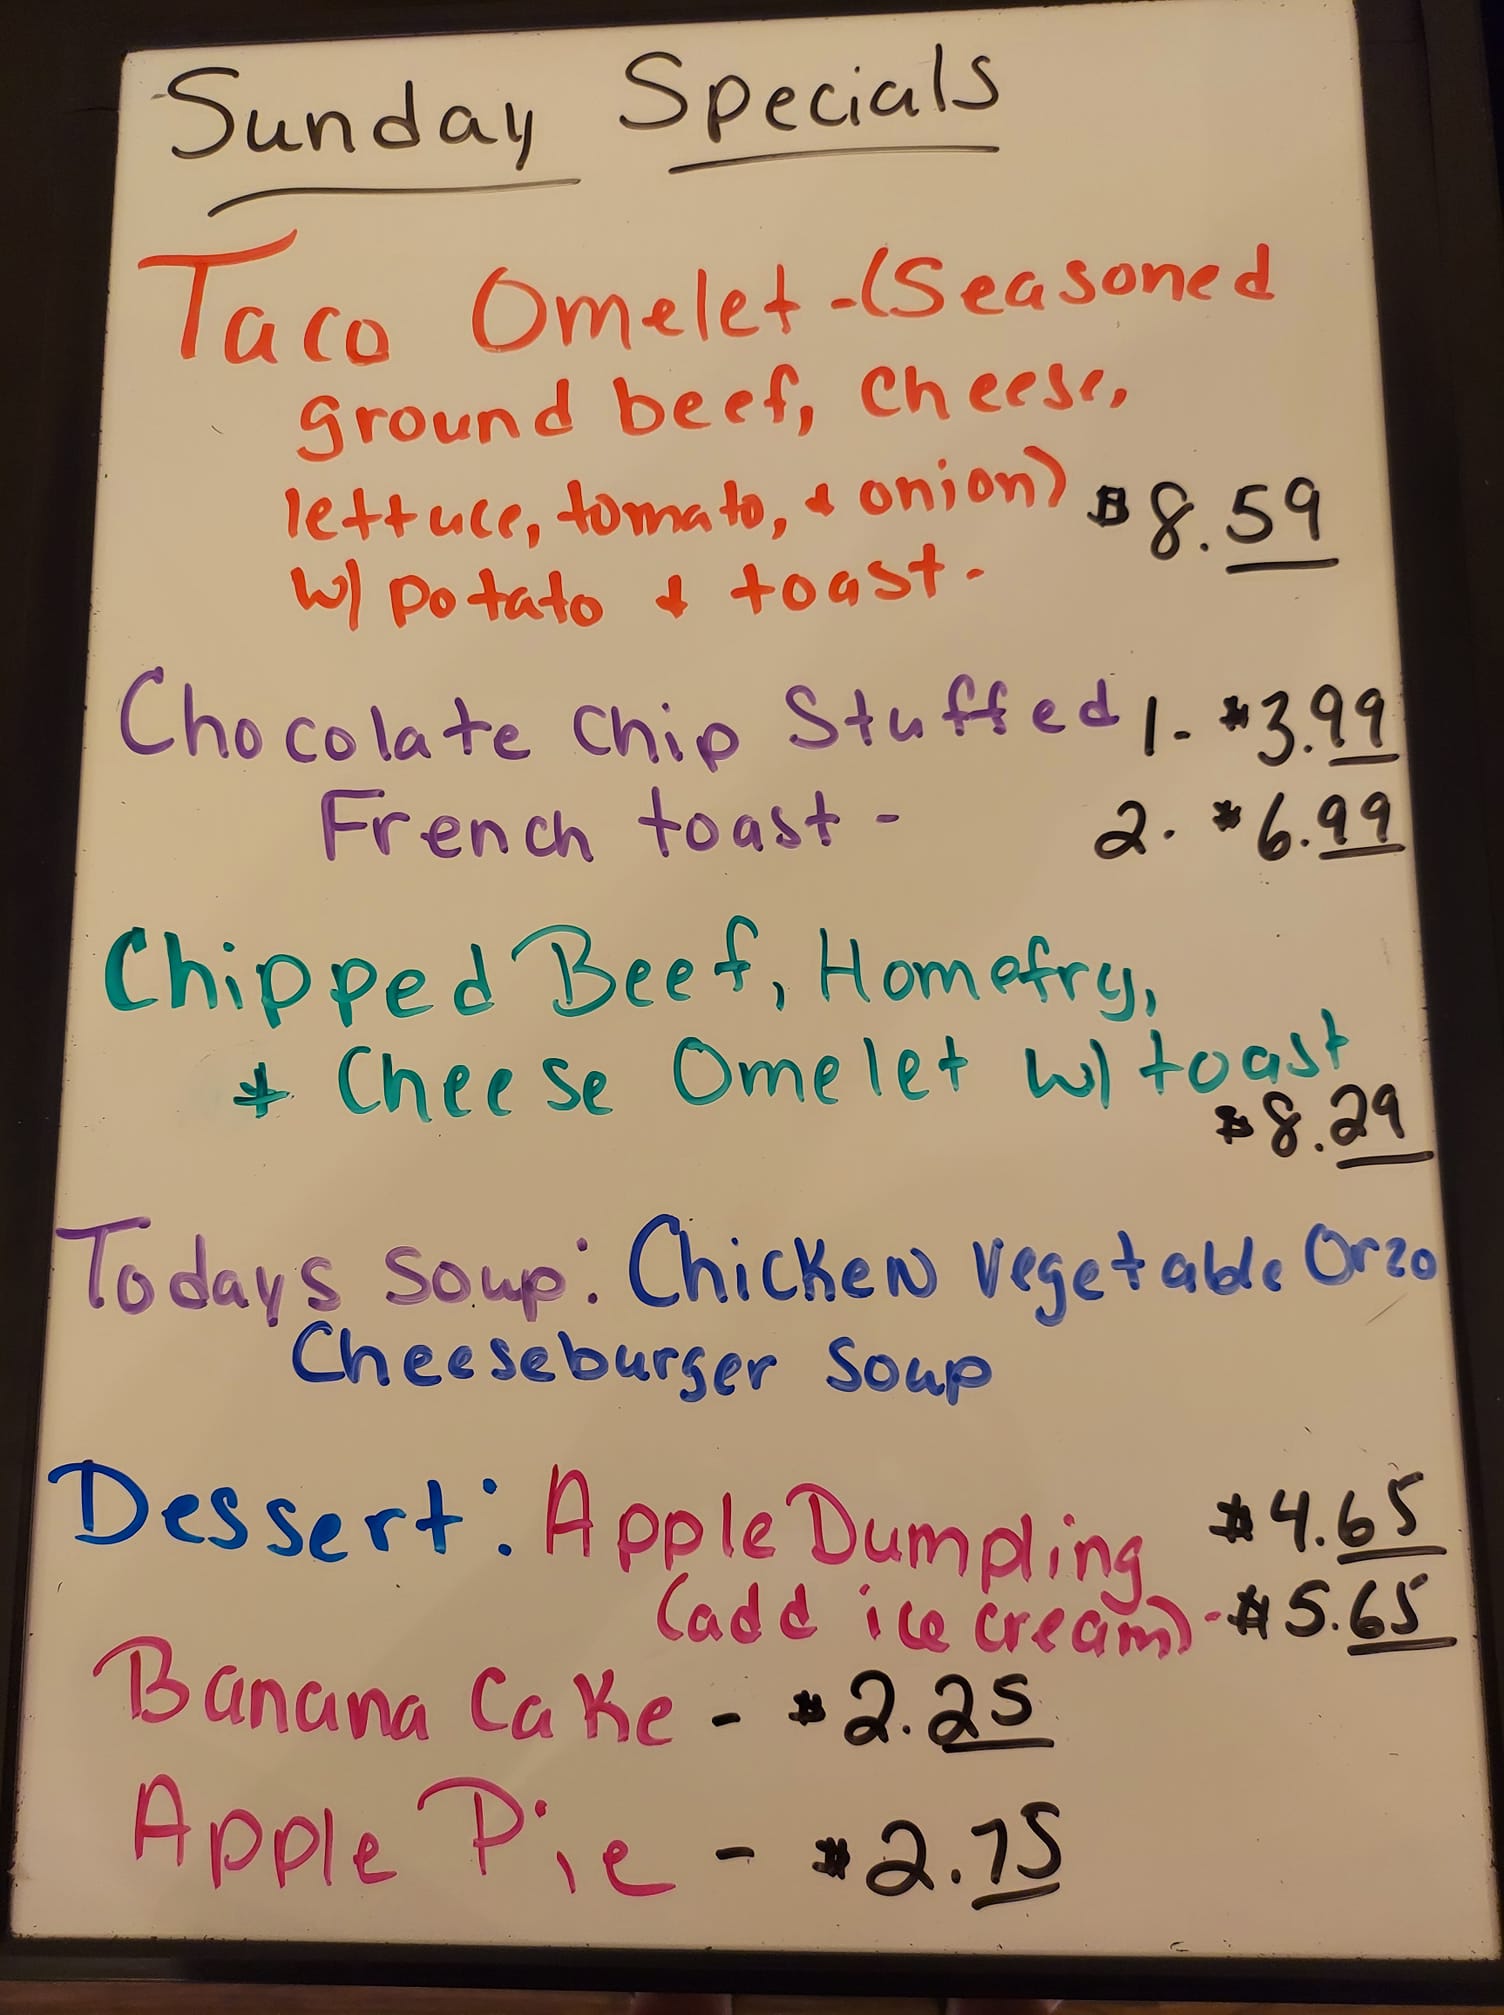 Sunday Specials
Taco Omelet - (Seasoned
ground beef, cheese,
lettuce, tomato, & onion) $8.59
w/ potato & toast -
Chocolate Chip Stuffed 1 - $3.99
French toast - 2 - $6.99
Chipped Beef, Homefry,
& Cheese Omelet w/ toast
$8.29
Todays Soup: Chicken Vegetable Orzo
Cheeseburger Soup
Dessert: Apple Dumpling $4.65
(add ice cream) - $5.65
Banana Cake - $2.25
Apple Pie - $2.75